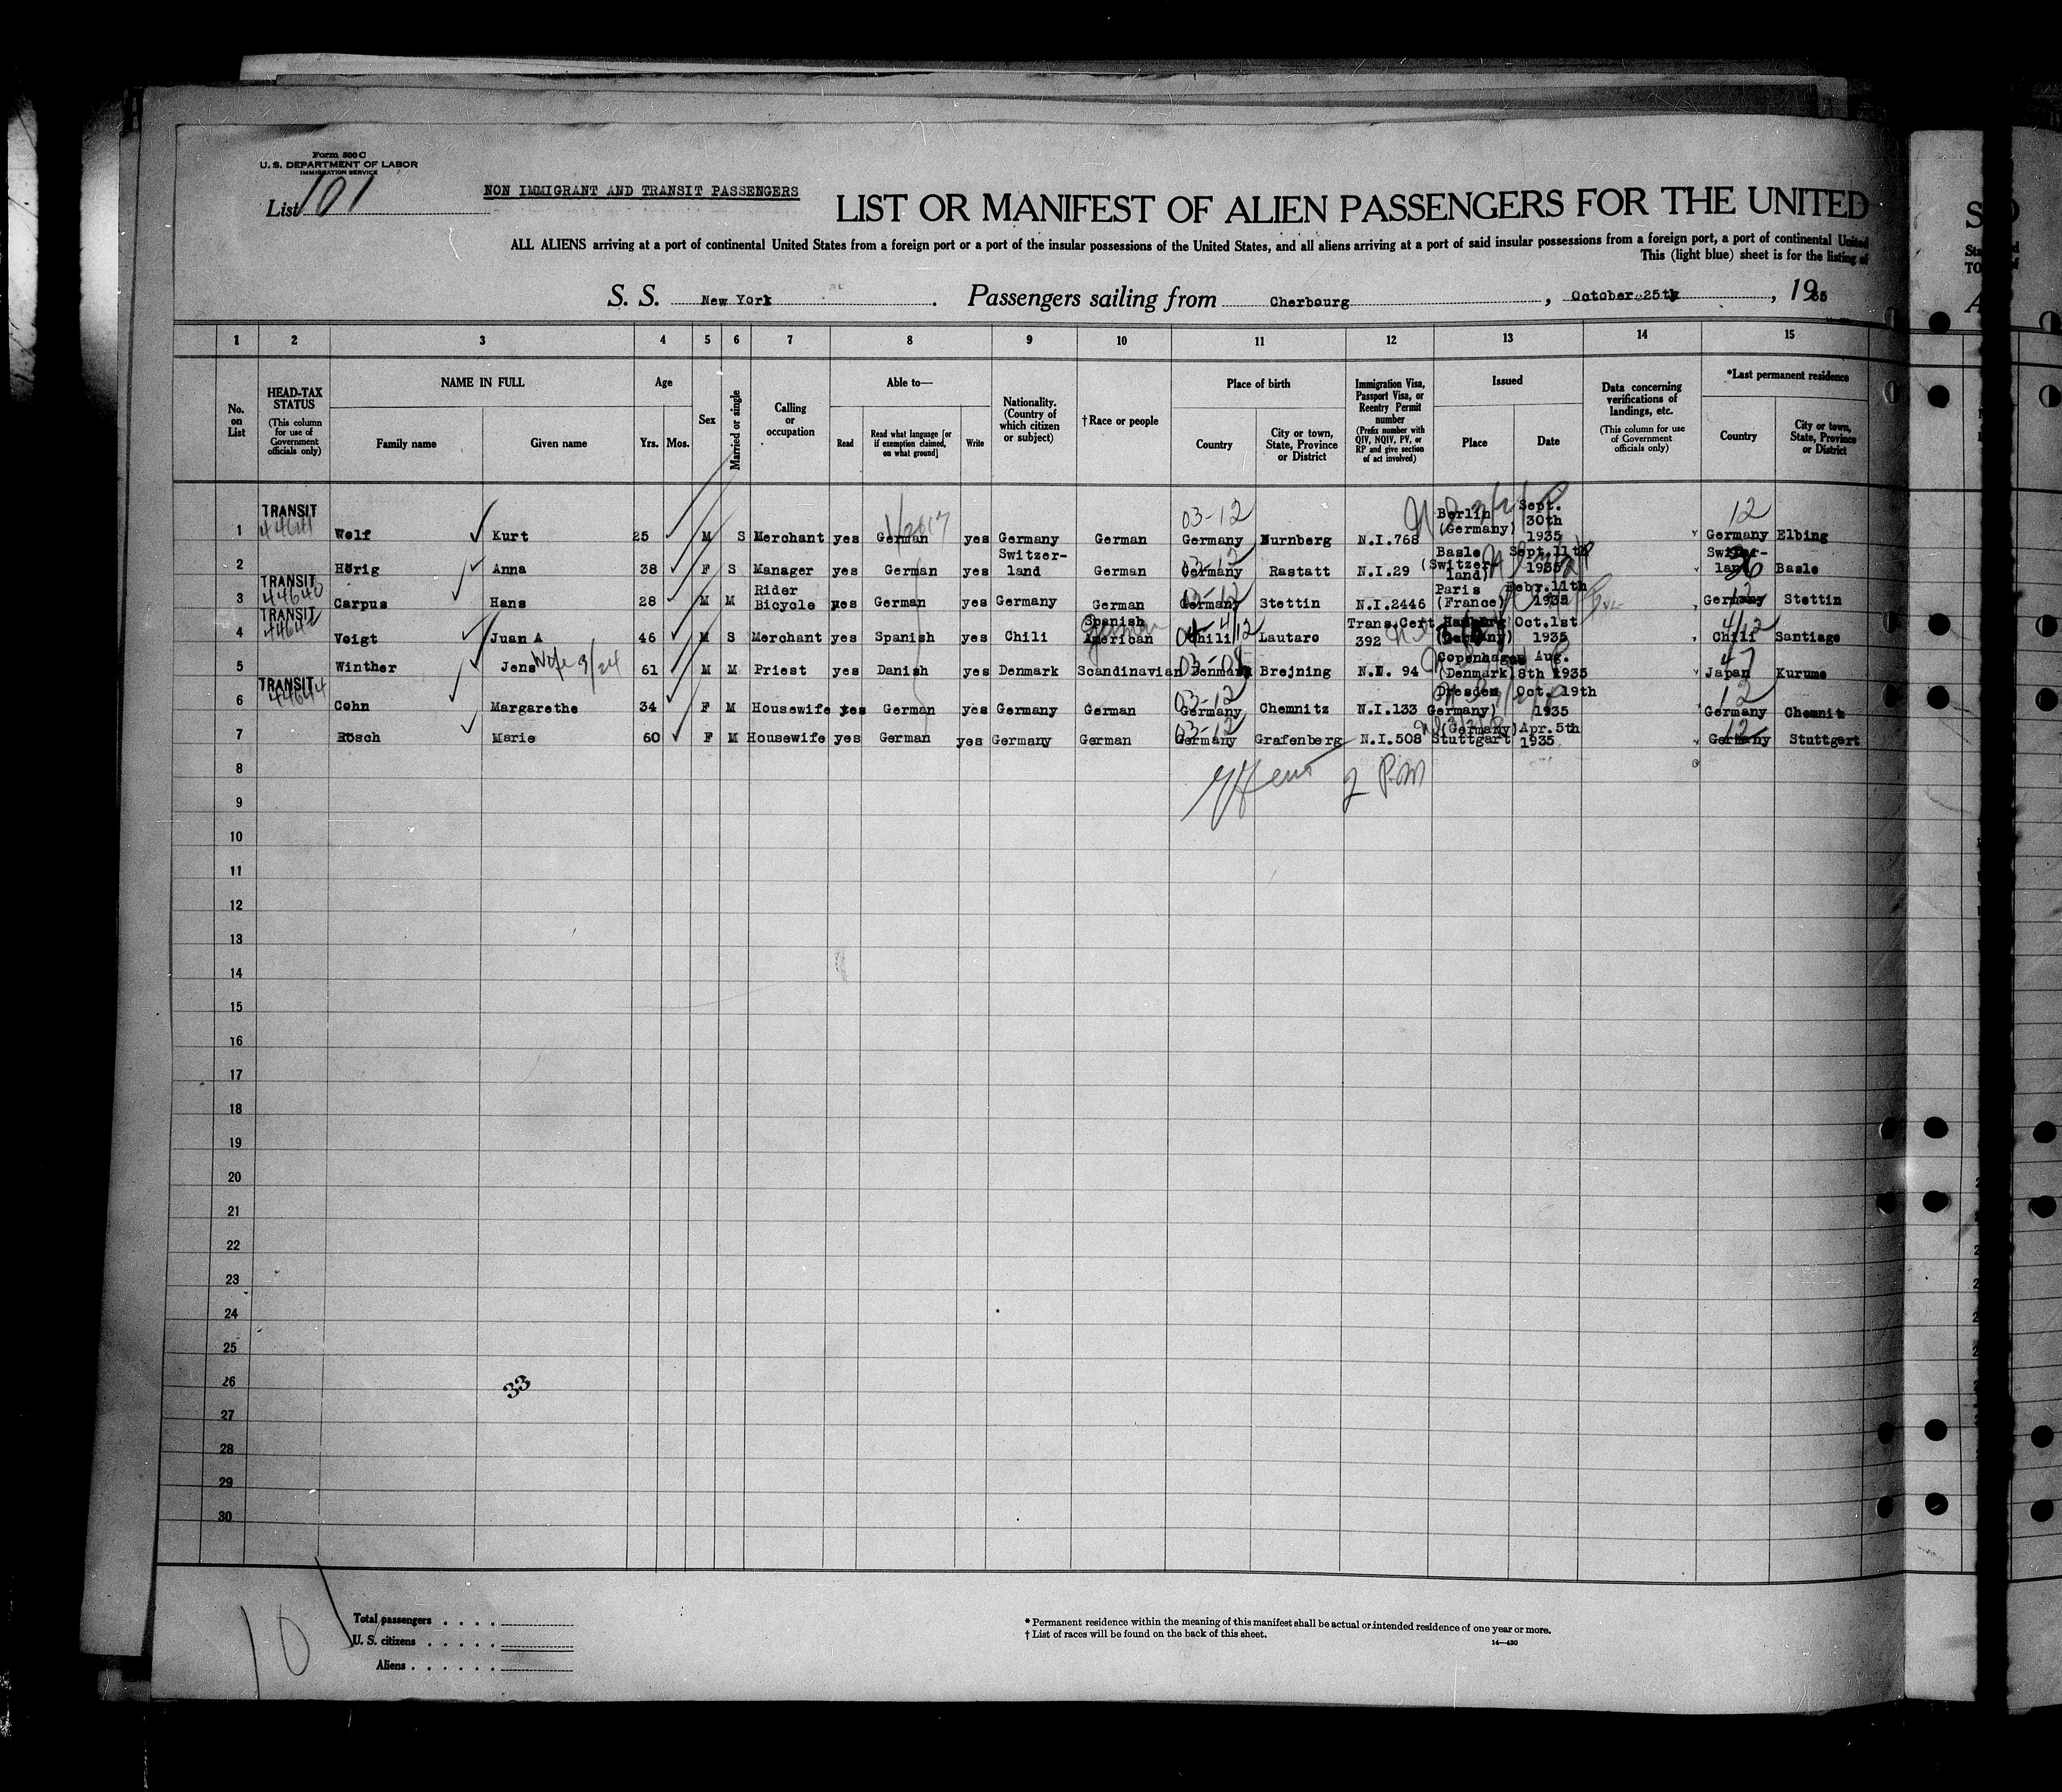 Form 500 C
U. S. DEPARTMENT OF LABOR
IMMIGRATION SERVICE
List 101
NON IMMIGRANT AND TRANSIT PASSENGERS
LIST OR MANIFEST OF ALIEN PASSENGERS FOR THE UNITED
ALL ALIENS arriving at a port of continental United States from a foreign port or a port of the insular possessions of the United States, and all aliens arriving at a port of said insular possessions from a foreign port, a port of continental United
This (light blue) sheet is for the listing of
S. S. New York . Passengers sailing from Cherbourg , October 25th , 1935
1 2 3 4 5 6 7 8 9 10 11 12 13 14 15
No. on List
HEAD-TAX STATUS
(This column for use of Government officials only)
NAME IN FULL
Family name Given name
Age
Yrs. Mos.
Sex
Married or single
Calling or occupation
Able to—
Read
Read what language [or if exemption claimed, on what ground]
Write
Nationality. (Country of which citizen or subject)
† Race or people
Place of birth
Country
City or town, State, Province or District
Immigration Visa, Passport Visa, or Reentry Permit number
(Prefix number with QIV, NQIV, PV, or RP and give section of act involved)
Issued
Place Date
Data concerning verifications of landings, etc.
(This column for use of Government officials only)
*Last permanent residence
Country
City or town, State, Province or District
1 TRANSIT 44641 Wolf Kurt 25 M S Merchant yes German yes Germany German 03-12 Germany Nurnberg N.I.768 Berlin (Germany) Sept. 30th 1935 12 Germany Elbing
2 Hörig Anna 38 F S Manager yes German yes Switzer-land German 03-12 Germany Rastatt N.I.29 Basle (Switzer-land) Sept.11th 1935 Switzer-land Basle
3 TRANSIT 44640 Carpus Hans 28 M M Rider Bicycle yes German yes Germany German 03-12 Germany Stettin N.I.2446 Paris (France) Febr.11th 1935 12 Germany Stettin
4 TRANSIT Voigt Juan A 46 M S Merchant yes Spanish yes Chili Spanish American German Chili Lautaro Trans.Cert 392 Hamburg (Germany) Oct.1st 1935 4/12 Chili Santiago
5 Winther Jens 61 M M Priest yes Danish yes Denmark Scandinavian 03-08 Denmark Brejning N.I. 94 Copenhagen (Denmark) Aug. 8th 1935 Japan Kurume
6 TRANSIT 44644 Cohn Margarethe 34 F M Housewife yes German yes Germany German 03-12 Germany Chemnitz N.I.133 Dresden Germany) Oct. 19th 1935 12 Germany Chemnitz
7 Rösch Marie 60 F M Housewife yes German yes Germany German 03-12 Germany Grafenberg N.I.508 (Germany) Stuttgart Apr.5th 1935 12 Germany Stuttgart
8
9
10
11
12
13
14
15
16
17
18
19
20
21
22
23
24
25
26
33
27
28
29
30
101
Total passengers . . . .
U. S. citizens . . . . .
Aliens . . . . . .
* Permanent residence within the meaning of this manifest shall be actual or intended residence of one year or more.
† List of races will be found on the back of this sheet.
14—430